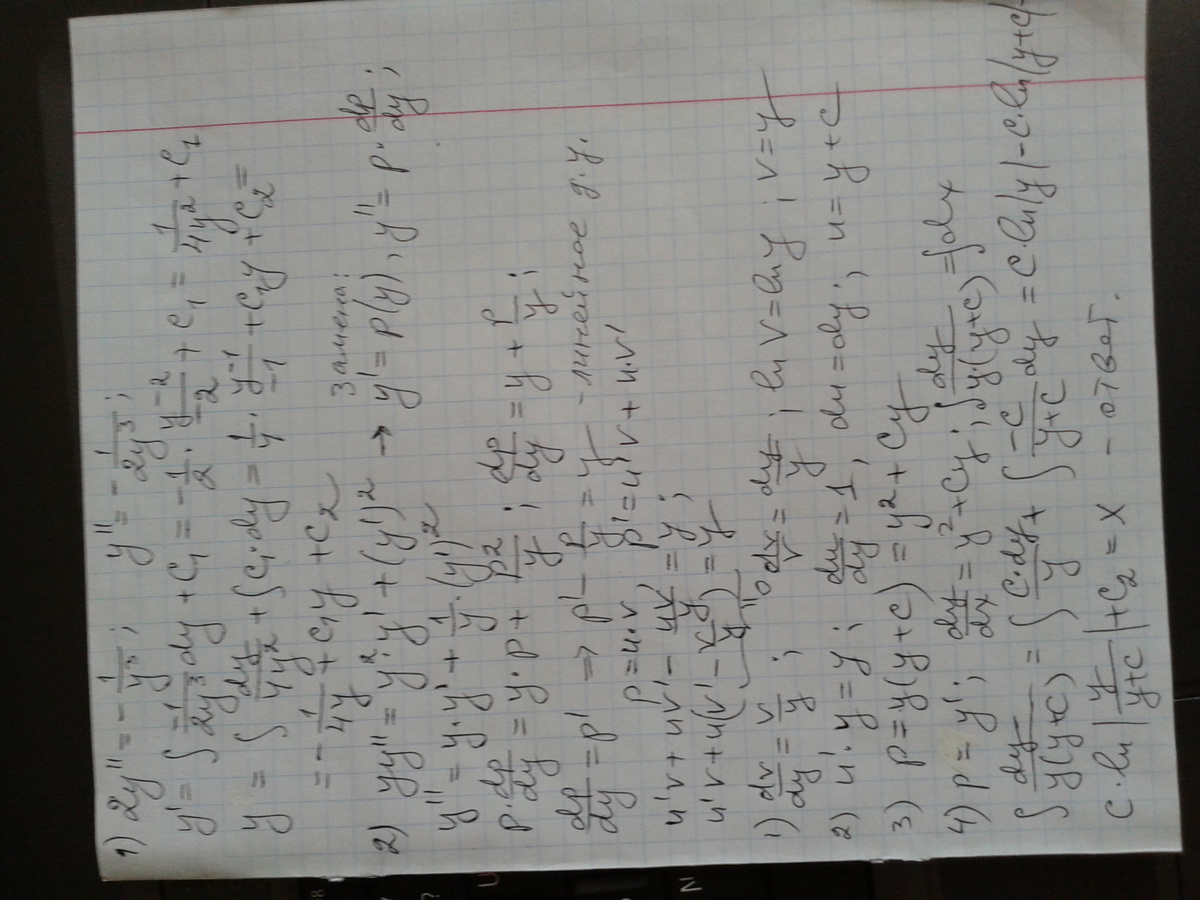 1) 2y'' = -1/y³; y'' = -1/2y³;
y' = ∫ -1/2y³ dy + C₁ = -1/2 · y⁻²/-2 + C₁ = 1/4y² + C₁
y = ∫ dy/4y² + ∫ C₁·dy = 1/4 · y⁻¹/-1 + C₁y + C₂ =
= -1/4y + C₁y + C₂
Замена:
2) yy'' = y²·y' + (y')² → y' = p(y), y'' = p · dp/dy;
y'' = y·y' + 1/y · (y')²
p · dp/dy = y·p + p²/y; dp/dy = y + p/y;
dp/dy = p' ⇒ p' - p/y = y - линейное д.у.
p = u·v p' = u'v + u·v'
u'v + uv' - uv/y = y;
u'v + u(v' - v/y) = y
"0
1) dv/dy = v/y; dv/v = dy/y; ln v = ln y; v = y
2) u'·y = y; du/dy = 1, du = dy; u = y + c
3) p = y(y+c) = y² + cy
4) p = y'; dy/dx = y² + cy; ∫ dy/y·(y+c) = ∫dx
∫ dy/y(y+c) = ∫ c·dy/y + ∫ -c/y+c dy = c·ln|y| - c·ln|y+c|+
c·ln|y/y+c| + C₂ = x - ответ.